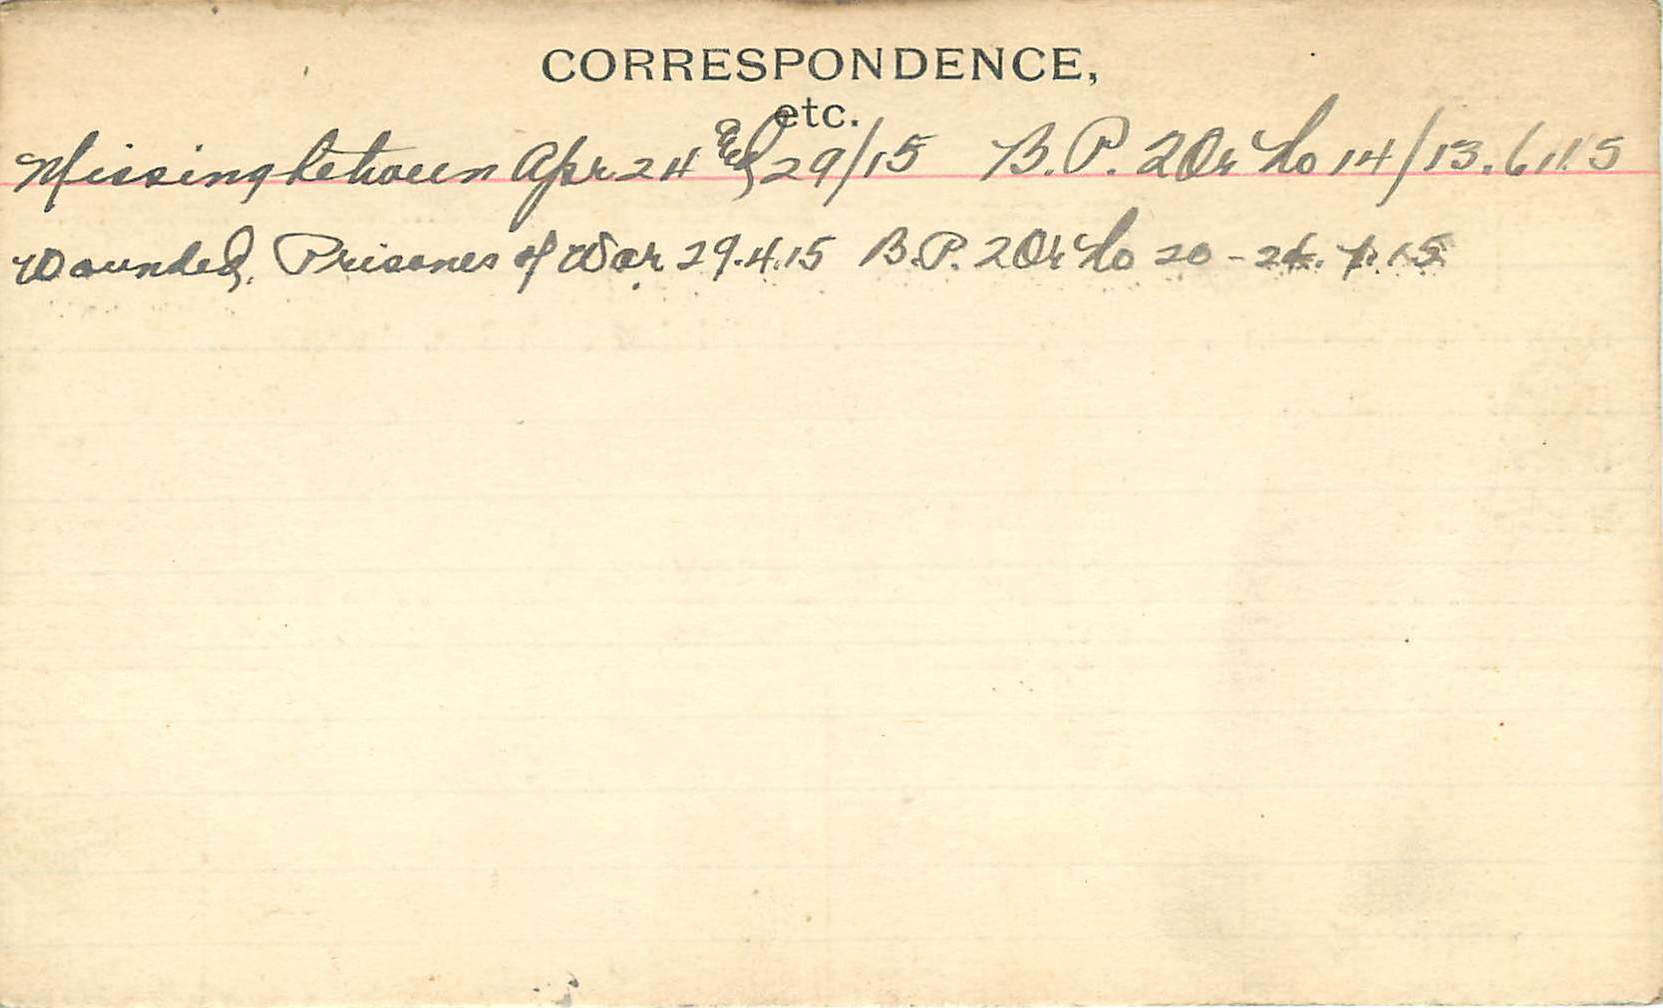 CORRESPONDENCE,
etc.
Missing between Apr 24 & 29/15 B.P. 2 Or No 14/13.6.15
Wounded, Prisoner of War 29.4.15 B.P. 2 Or No 20 - 24. 7. 15